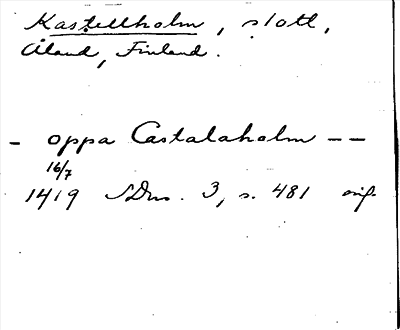 Kastellholm, slott,
Åland, Finland.
- oppa Castalaholm - -
16/7
1419 SDns. 3, s. 481 orig.